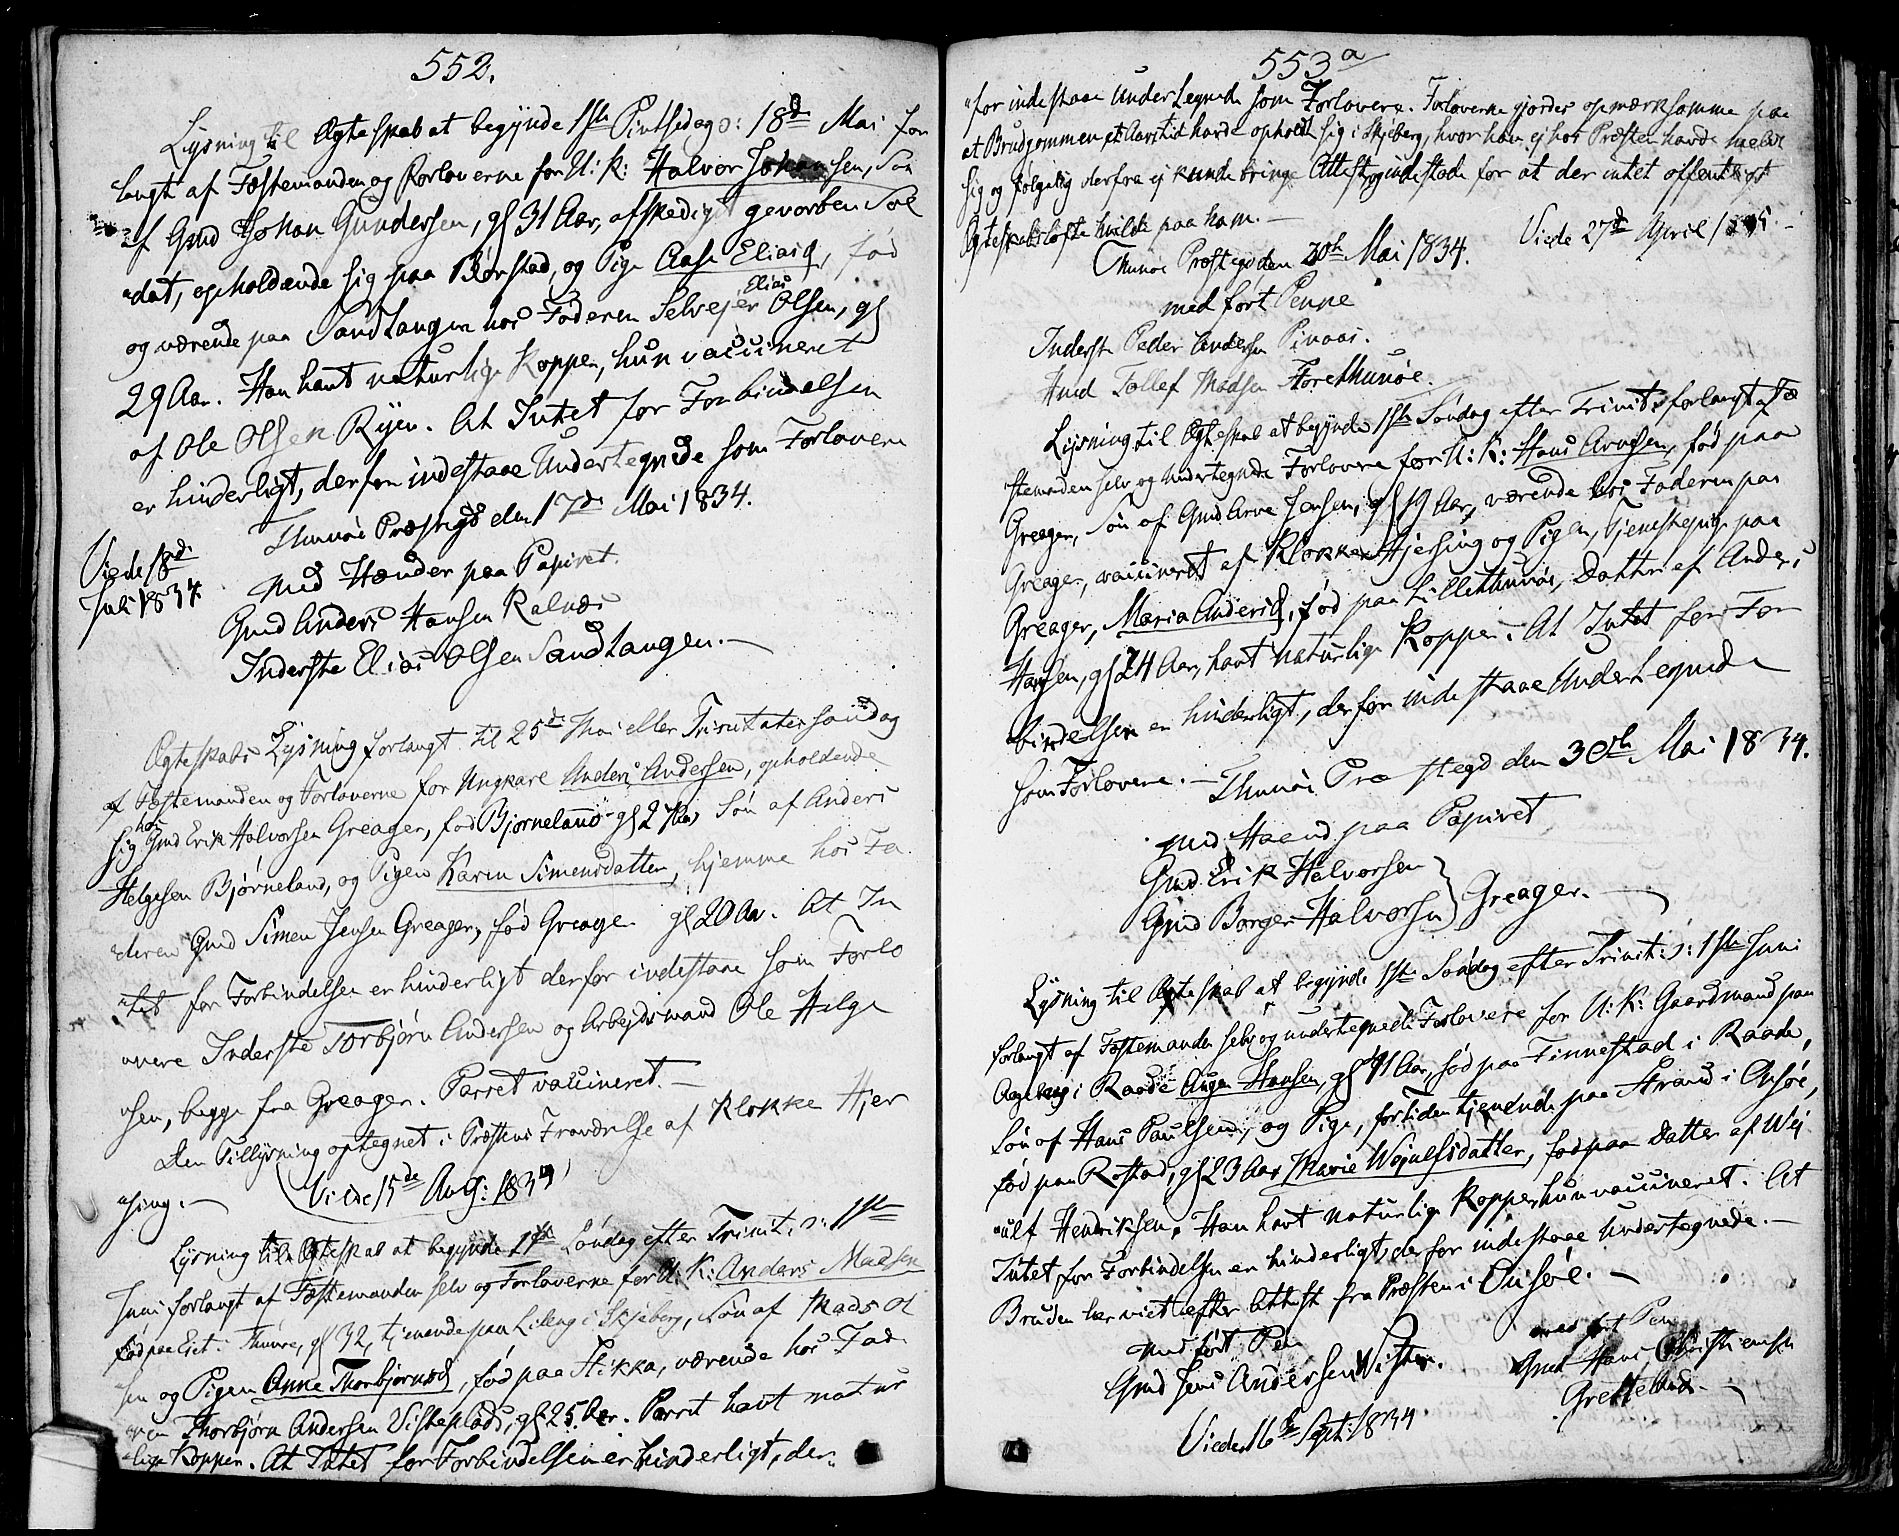 552.
Lysning til Ægteskab at begynde 1ste Pintsedag ɔ: 18de Mai for
langt af Fæstemanden og Forloverne for U: K: Halvor Johansen, Søn
af Gmd Johan Gundersen, gl 31 Aar, afskediget gevorben Sol
"dat, opholdende sig paa Børstad, og Pige Aase Eliasd, fød
og værende paa Sandtangen hos Faderen Selvejer Elias Olsen, gl
29 Aar. Han havt naturlige Kopper, hun vaccineret
af Ole Olsen Ryen. At Intet for Forbindelsen
er hinderligt, derfor indestaae Undertegnede som Forlovere
Thunøe Præstegd den 17de Mai 1834.
Viede 18de
Juli 1834
med Hænder paa Papiret.
Gmd Anders Hansen Kalnæs
Inderste Elias Olsen Sandtangen.—
Ægteskabs Lysning forlangt til 25de Mai eller Trinitatis søndag
af Fæstemanden og Forloverne for Ungkarl Anders Andersen, opholdende
sig hos Gmd Erik Halvorsen Greager, fød Bjørneland gl 27 Aar Søn af Anders
Helgesen Bjørneland, og Pigen Karen Simensdatter, hjemme hos Fa
"deren Gmd Simen Jensen Greager, fød Greager gl 20 Aar. At In
"tet for Forbindelsen er hinderligt derfor indestaae som Forlo
"vere Inderste Torbjørn Andersen og Arbejdsmand Ole Helge
"sen, begge fra Greager. Parret vaccineret.—
Den Tillysning optegnet i Præstens Fraværelse af Klokker Hjer
"sing.— Viede 15de Aug: 1834
Lysning til Ægteskab at begynde 1ste Søndag efter Trinit: ɔ: 1ste
Juni forlangt af Fæstemanden selv og Forloverne for U: K: Anders Madsen
fød paa Eiet i Thunøe, gl 32, tjenende paa Lilleng i Skjeberg, Søn af Mads Ol
sen og Pigen Anne Thorbjørnsd, fød paa Stikka, værende hos Fad
eren Thorbjørn Andersen Visteplads, gl 25 Aar. Parret havt natur
"lige Kopper. At Intet for Forbindelsen er hinderligt, der
553 a
"for indestaae Undertegnede som Forlovere. Forloverne gjordes opmærksomme paa
at Brudgommen et Aarstid havde opholdt sig i Skjeberg, hvor han ej hos Præsten havde meldt
sig og følgelig derfra ej kunde bringe Attest, og indestode for at der intet offentligt
Ægteskabsløfte hvilede paa ham.—
Viede 27de April 1835.
Thunøe Præstegd den 20de Mai 1834.
med ført Penne
Inderste Peder Andersen Pinaas.
Hmd Tollef Madsen Storethunøe.
Lysning til Ægteskab at begynde 1ste Søndag efter Trinit: forlangt af Fæ
stemanden selv og undertegnede Forlovere for U: K: Hans Arvesen, fød paa
Greager, Søn af Gmd Arve Jensen, gl 19 Aar, værende hos Faderen paa
Greager, vaccineret af Klokker Hjersing og Pigen, Tjenestepige paa
Greager, Maria Andersd, fød paa Lillethunøe, Datter af Anders
Hansen, gl 24 Aar, havt naturlige Kopper. At Intet for For
bindelsen er hinderligt, derfor indestaae Undertegnede
som Forlovere.— Thunøe Præstegd den 30te Mai 1834.
med Haand paa Papiret
Gmd Erik Halvorsen
Gmd Borger Halvorsen } Greager.—
Lysning til Ægteskab at begynde 1ste Søndag efter Trinit: ɔ: 1ste Juni
forlangt af Fæstemanden selv og undertegnede Forlovere for U: K: Gaardmand paa
i Raade Augen Hansen, gl 41 Aar, fød paa Finnestad i Raade,
Søn af Hans Paulsen, og Pige, for tiden tjenende paa Strand i Onsøe,
fød paa Rostad, gl 23 Aar Marie Wejulfsdatter, fød paa Datter af Wej
"ulf Hendriksen. Han havt naturlige Kopper hun vaccineret. At
Intet for Forbindelsen er hinderligt, derfor indestaae Undertegnede.—
Bruden her viet efter Attest fra Præsten i Onsøe.—
med ført Pen
Gmd Jens Andersen Vister.
med ført Pen
Gmd Hans Christiansen
Grettelund.—
Viede 16de Sept: 1834